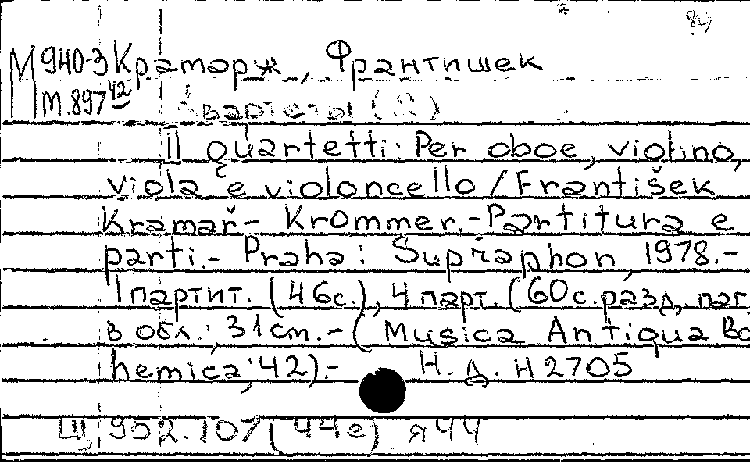 М 940-3 Крамарж, Франтишек
М.897 42 Квартеты (2)
II quartetti: Per oboe, violino,
viola e violoncello / František
Kramař- Krommer.-Partitura e
parti.- Praha: Supraphon, 1978.-
1 партит. (46с.), 4 парт. (60с. разд. паг.
в обл.; 31см.-( Musica Antiqua Bo
hemica; 42).- Н.д. H 2705
952.107(44е) я44